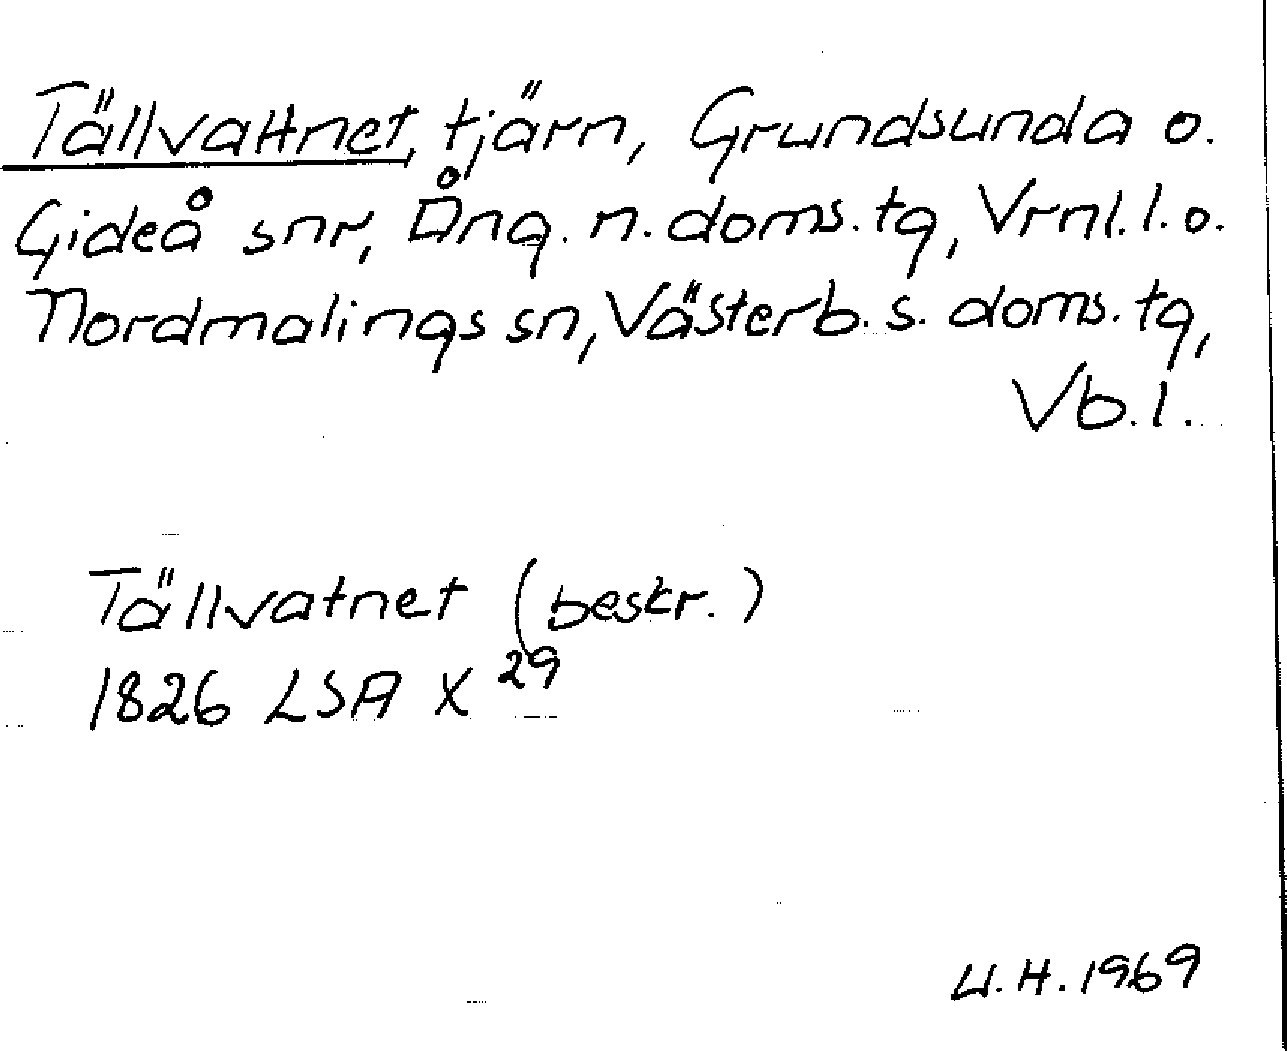 Tällvattnet, tjärn, Grundsunda o.
Gideå snr, Ång. n. doms. tg, Vrnl. l. o.
Nordmalings sn, Västerb. s. doms. tg,
Vb. l.
Tällvatnet (beskr.)
1826 LSA X 29
U. H. 1969